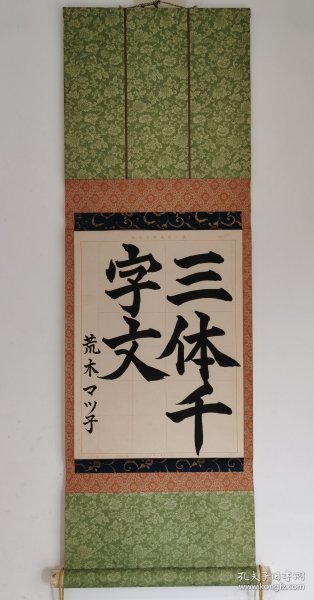 三体千
字文
荒木マツ子
孔夫子旧书网